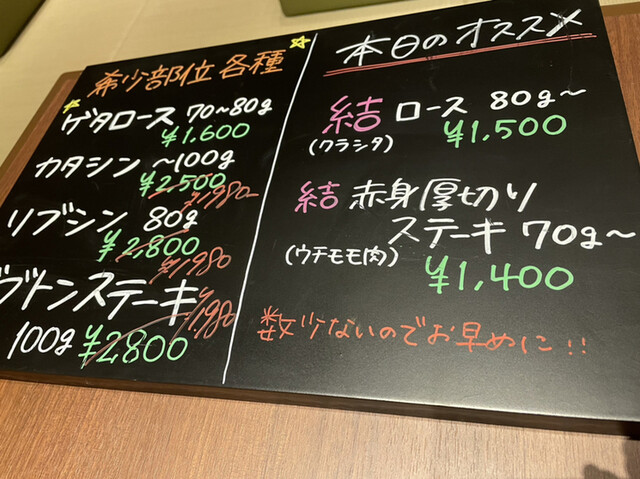 希少部位 各種
ゲタロース 70〜80g
¥1,600
カタシン 〜100g
¥2,500
¥1,980
リブシン 80g
¥2,800
¥1,980
ブトンステーキ
¥1,980
100g ¥2,800
本日のオススメ
結 ロース 80g〜
(クラシタ) ¥1,500
結 赤身厚切り
ステーキ 70g〜
(ウチモモ肉) ¥1,400
数少ないのでお早めに!!